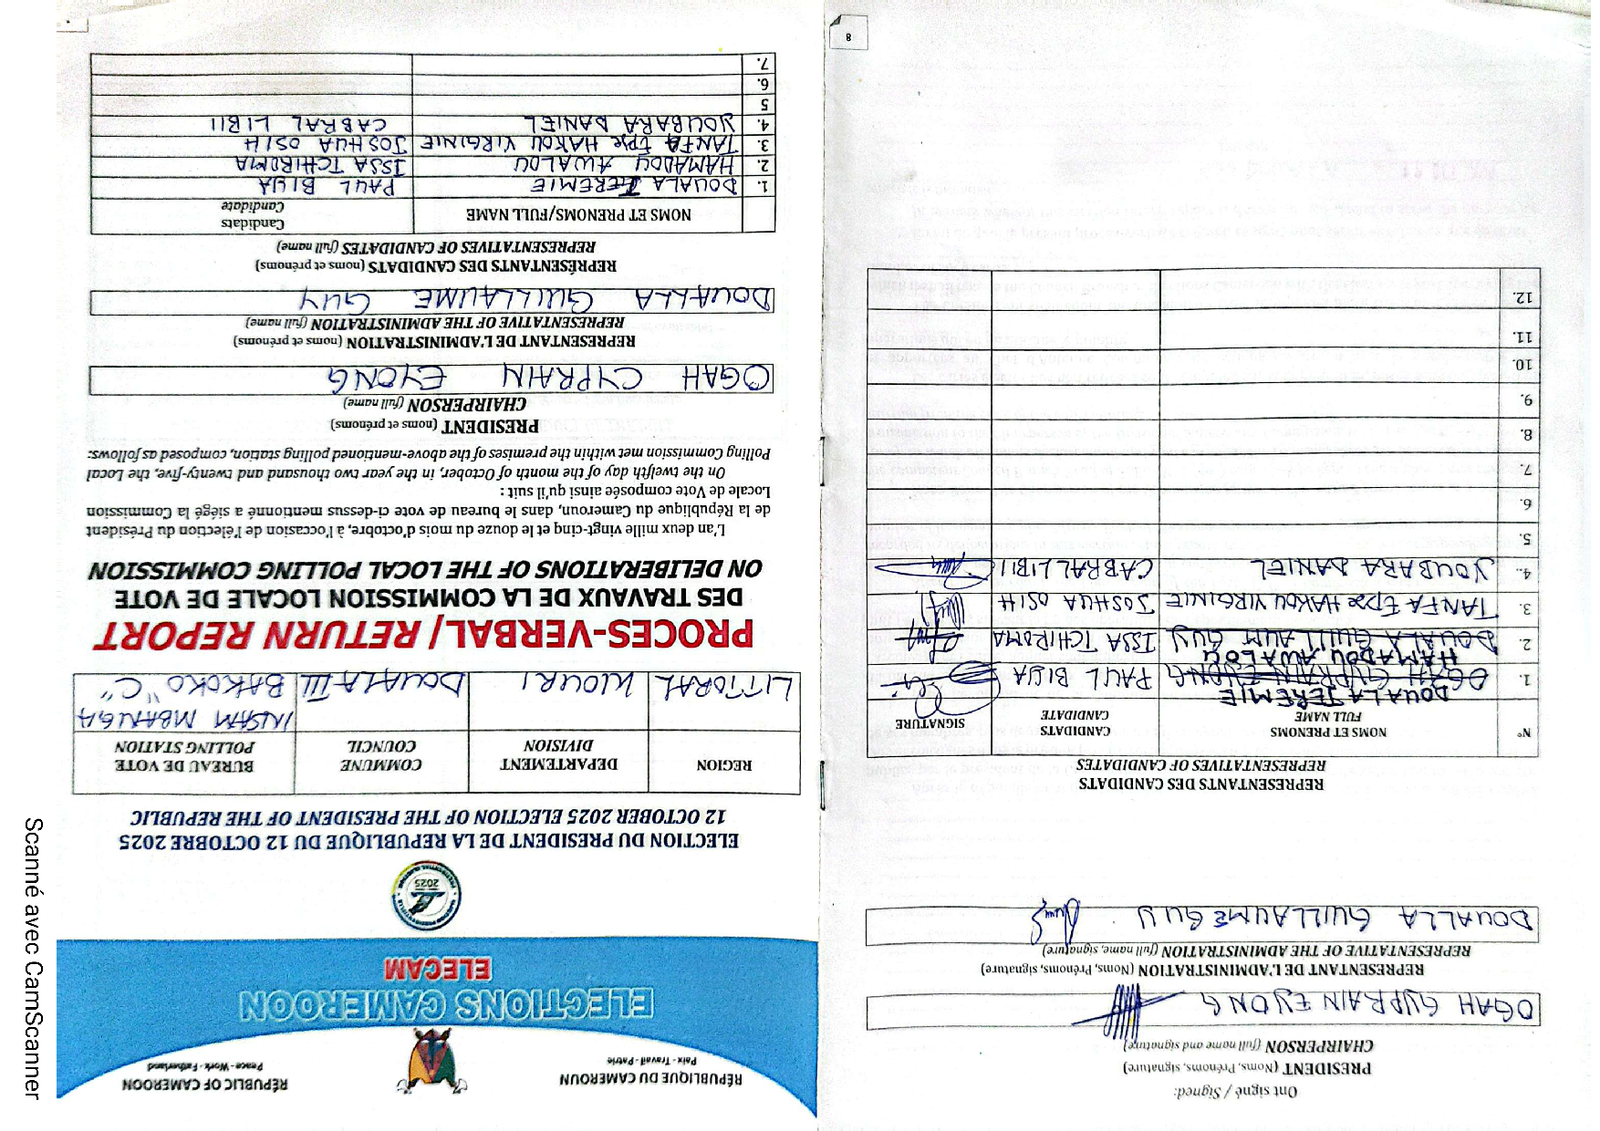 RÉPUBLIQUE DU CAMEROUN
Paix - Travail - Patrie
RÉPUBLIC OF CAMEROON
Peace - Work - Fatherland
ELECTIONS CAMEROON
ELECAM
2025
ELECTION DU PRESIDENT DE LA REPUBLIQUE DU 12 OCTOBRE 2025
12 OCTOBER 2025 ELECTION OF THE PRESIDENT OF THE REPUBLIC
REGION DEPARTEMENT DIVISION COMMUNE COUNCIL BUREAU DE VOTE POLLING STATION
LITTORAL WOURI DOUALA III INSAM MBANGA BAKOKO "C"
PROCES-VERBAL/ RETURN REPORT
DES TRAVAUX DE LA COMMISSION LOCALE DE VOTE
ON DELIBERATIONS OF THE LOCAL POLLING COMMISSION
L'an deux mille vingt-cinq et le douze du mois d'octobre, à l'occasion de l'élection du Président
de la République du Cameroun, dans le bureau de vote ci-dessus mentionné a siégé la Commission
Locale de Vote composée ainsi qu'il suit :
On the twelfth day of the month of October, in the year two thousand and twenty-five, the Local
Polling Commission met within the premises of the above-mentioned polling station, composed as follows:
PRESIDENT (noms et prénoms)
CHAIRPERSON (full name)
OGAH CYPRAIN EYONG
REPRESENTANT DE L'ADMINISTRATION (noms et prénoms)
REPRESENTATIVE OF THE ADMINISTRATION (full name)
DOUALLA GUILLAUME GUY
REPRÉSENTANTS DES CANDIDATS (noms et prénoms)
REPRESENTATIVES OF CANDIDATES (full name)
NOMS ET PRENOMS/FULL NAME Candidats Candidate
1. DOUALA JEREMIE PAUL BIYA
2. HAMADOU AWALOU ISSA TCHIROMA
3. TANFA Epse HAKOU VIRGINIE JOSHUA OSIH
4. YOUBARA DANIEL CABRAL LIBII
5
6.
7.
Ont signé / Signed:
PRESIDENT (Noms, Prénoms, signature)
CHAIRPERSON (full name and signature)
OGAH CYPRAIN EYONG
REPRESENTANT DE L'ADMINISTRATION (Noms, Prénoms, signature)
REPRESENTATIVE OF THE ADMINISTRATION (full name, signature)
DOUALLA GUILLAUME GUY
REPRESENTANTS DES CANDIDATS
REPRESENTATIVES OF CANDIDATES
N° NOMS ET PRENOMS FULL NAME CANDIDATS CANDIDATE SIGNATURE
DOUALA JEREMIE
1. OGAH CYPRAIN EYONG PAUL BIYA
HAMADOU AWALOU
2. DOUALA GUILLAUM GUY ISSA TCHIROMA
3. TANFA Epse HAKOU VIRGINIE JOSHUA OSIH
4. YOUBARA DANIEL CABRAL LIBII
5.
6.
7.
8.
9.
10.
11.
12.
8
Scanné avec CamScanner